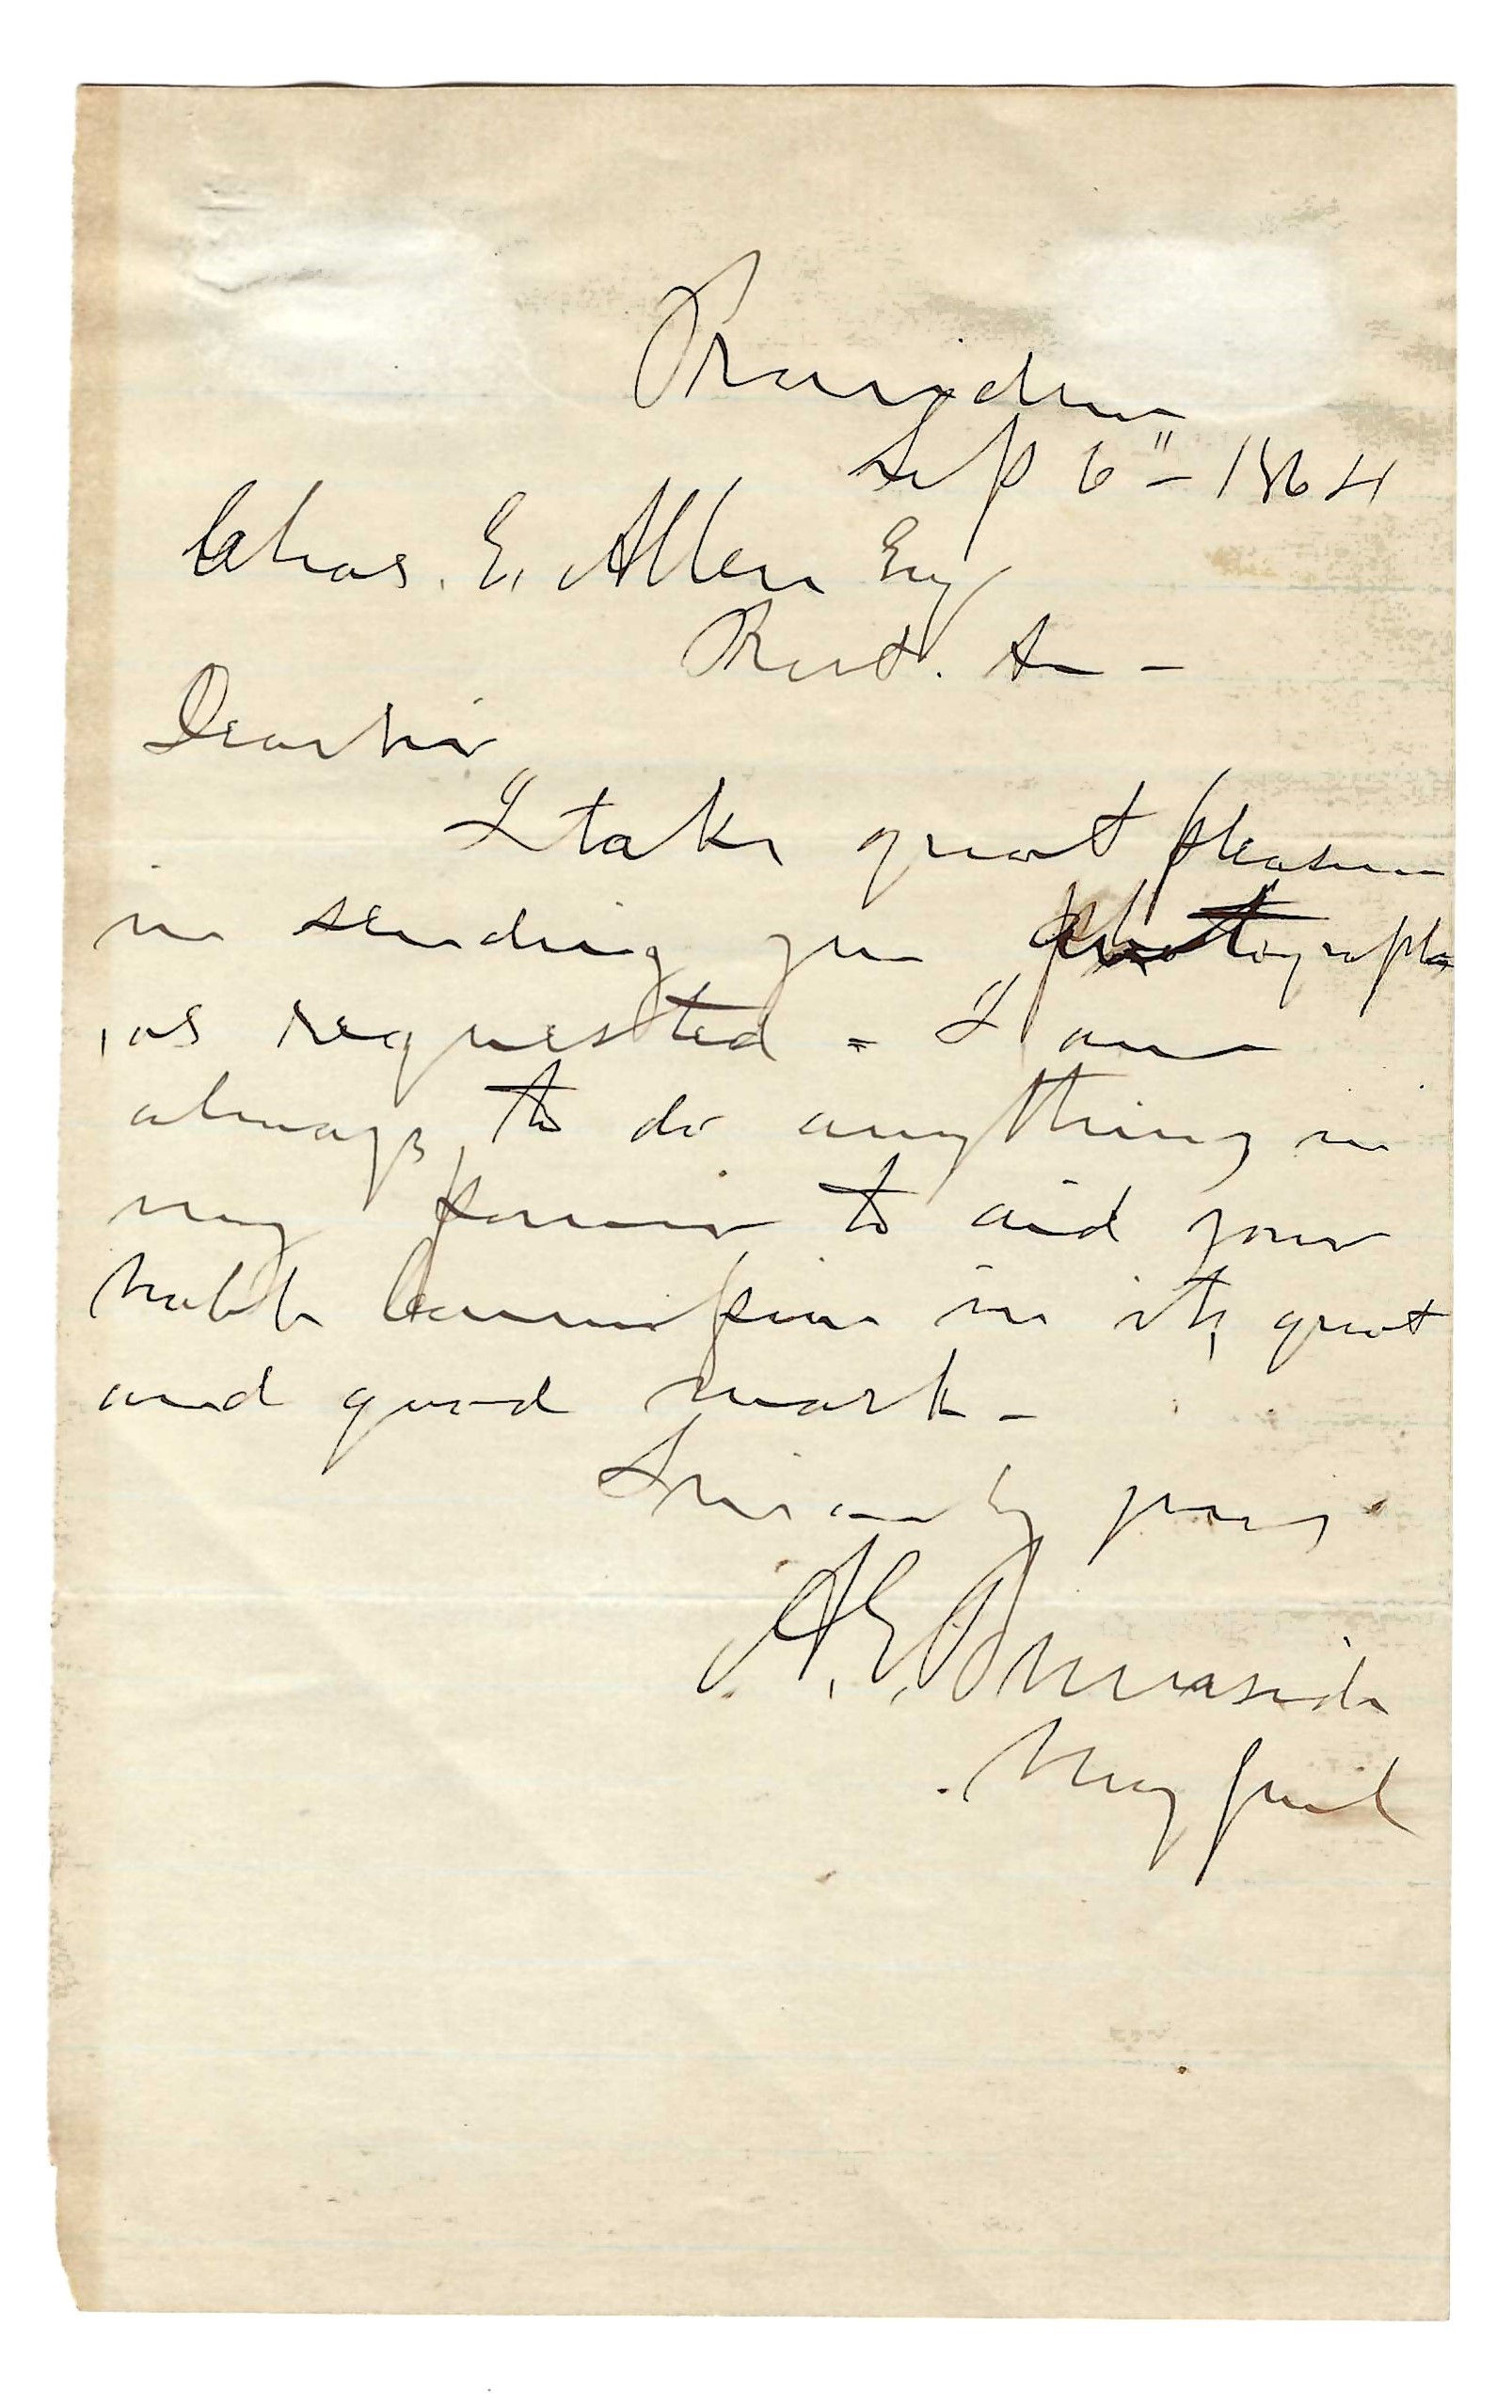 Providence
Sep 6" - 1864
Chas. E. Allen Esq
Prest. &c -
Dear Sir
I take great pleasure
in sending you photographs
as requested - I am
always to do anything in
my power to aid your
noble Commission in its great
and good work -
Sincerely yours
A. E. Burnside
Maj Genl